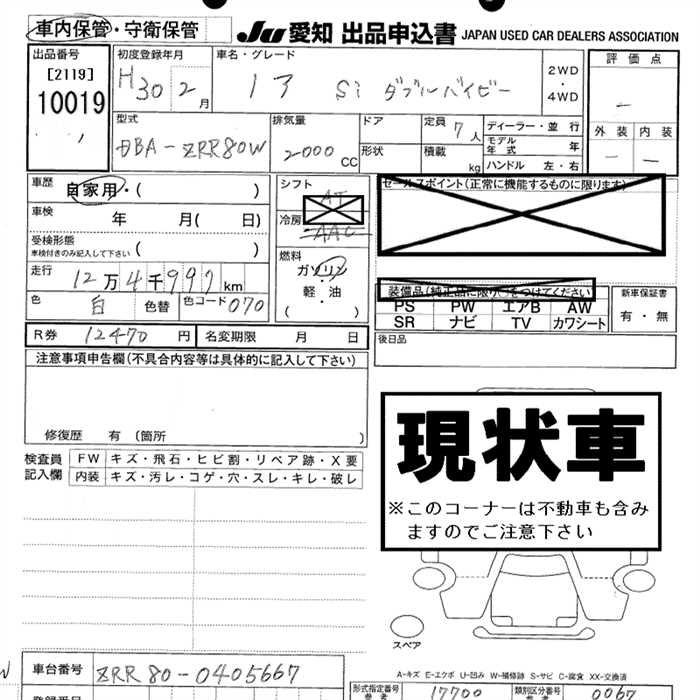 車内保管・守衛保管
JU 愛知 出品申込書 JAPAN USED CAR DEALERS ASSOCIATION
出品番号
[2119]
10019
初度登録年月
H30 2月
車名・グレード
Si ダブルバイビー
2WD
・
4WD
評価点
－
外装 内装
－ －
型式
DBA-ZRR80W
排気量
2000 CC
ドア
形状
定員 7人
積載 kg
ディーラー・並行
モデル年式 年
ハンドル 左・右
車歴
自家用・( )
車検 年 月( 日)
受検形態
車検付きのみ記入して下さい ( )
走行 12万4千997km
色 白 色替 色コード 070
シフト AT
冷房 AAC
燃料
ガソリン
軽・油
( )
セールスポイント(正常に機能するものに限ります)
装備品(純正品に限り○をつけてください
PS PW エアB AW
SR ナビ TV カワシート
新車保証書
有・無
R券 12470円 名変期限 月 日
後日品
注意事項申告欄(不具合内容等は具体的に記入して下さい)
修復歴 有 (箇所 )
検査員記入欄
FW キズ・飛石・ヒビ割・リペア跡・X要
内装 キズ・汚レ・コゲ・穴・スレ・キレ・破レ
現状車
※このコーナーは不動車も含み
ますのでご注意下さい
スペア
車台番号 ZRR80-0405667
A-キズ E-エクボ U-凹み W-補修跡 S-サビ C-腐食 XX-交換済
型式指定番号 参考 17700
類別区分番号 参考 0067